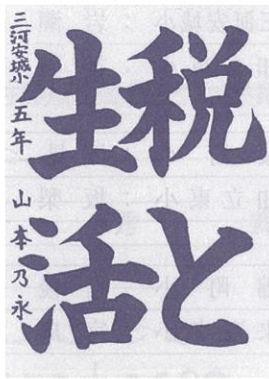 税と
生活
三河安城小 五年 山本乃永